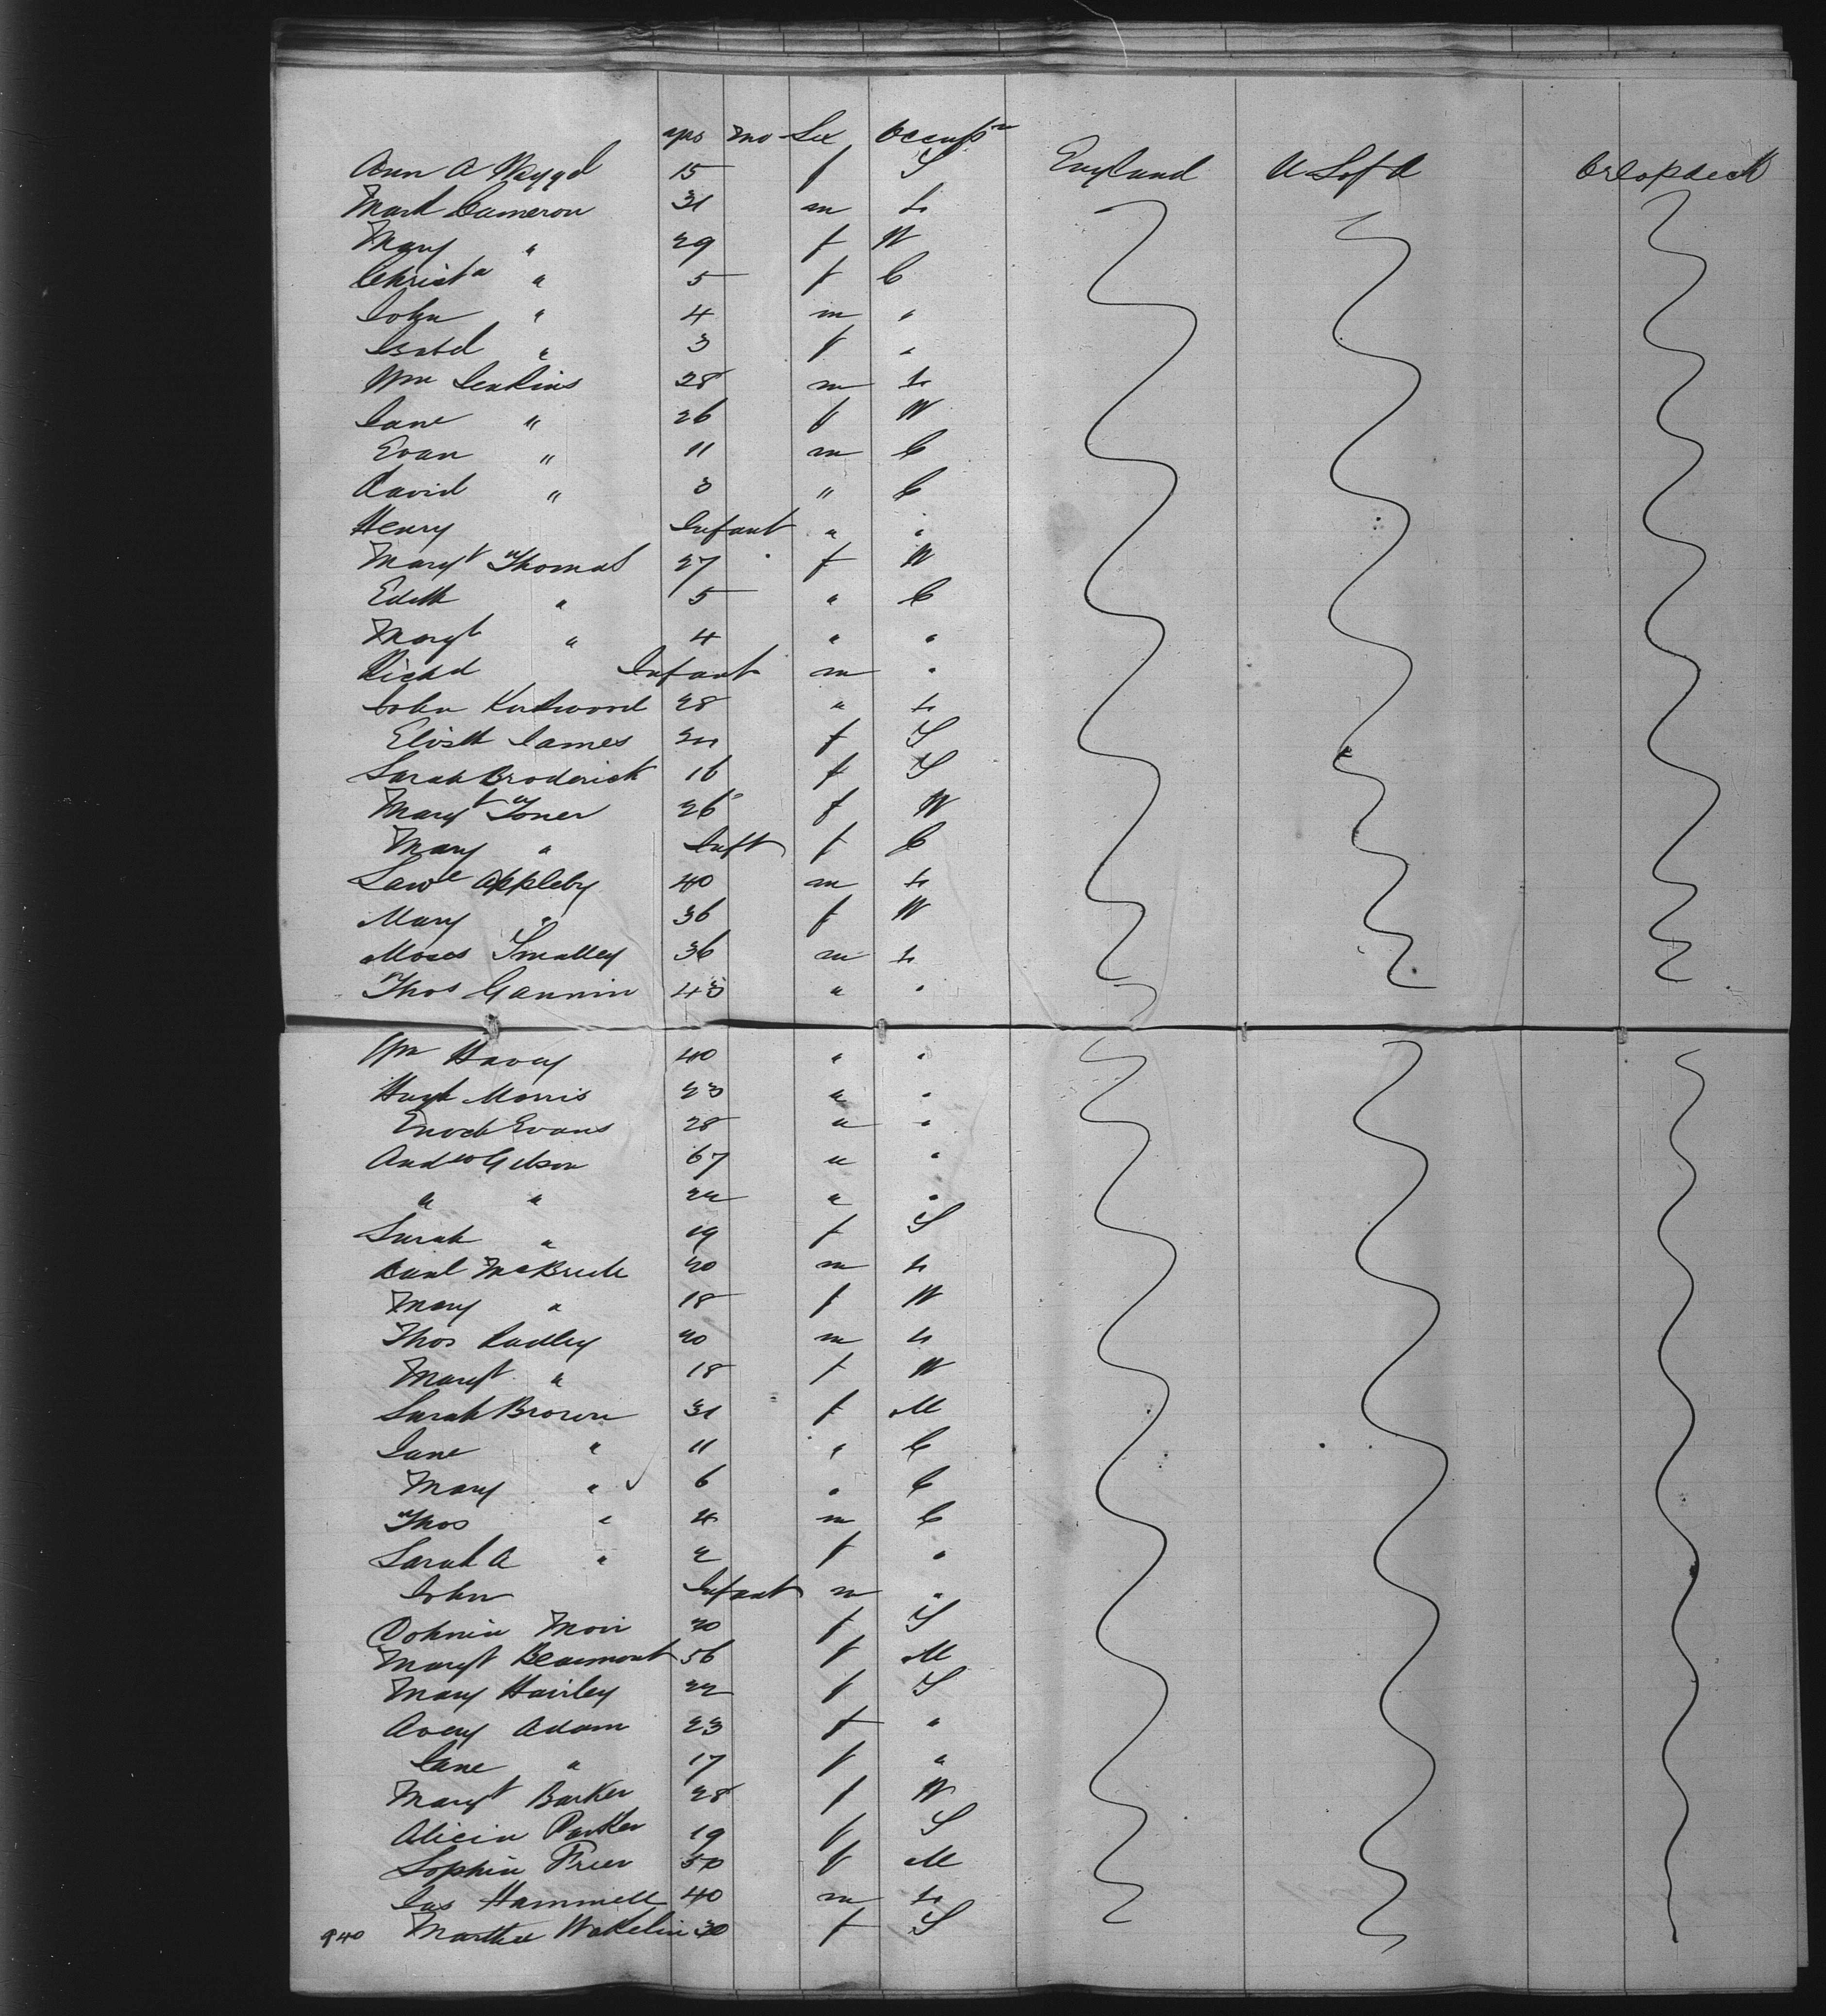 yrs mo Sex Occupn
Ann A 15 f S England U S of A Orlopdeck
Mark Cameron 31 m Lr
Mary " 29 f W
Christa " 5 f C
John " 4 m "
Isabel " 3 f "
Wm Jenkins 28 m Lr
Jane " 26 f W
Evan " 11 m C
David " 3 " C
Henry Infant " "
Margt Thomas 27 f W
Edith " 5 " C
Margt " 4 " "
Richd Infant m "
John Kirkwood 28 " Lr
Elizth James f S
Sarah Broderick 16 f S
Margt Toner 26 f W
Mary " Inft f C
Lawe Appleby 40 m Lr
Mary " 36 f W
Moses Smalley 36 m Lr
Thos Gannin 43 " "
Wm Havey 40 " "
Hugh Morris 23 " "
Enoch Evans 28 " "
Andw Gibson 67 " "
" " 22 " "
Sarah " 19 f S
Danl McBride 20 m Lr
Mary " 18 f W
Thos Dudley 20 m Lr
Margt " 18 f W
Sarah Brown 31 f M
Jane " 11 " C
Mary " 6 " C
Thos " 4 m C
Sarah A " 2 f "
John Infant m "
Moir 20 f S
Margt Beaumont 56 f M
Mary 22 f S
Avery Adam 23 f "
Jane " 17 f "
Margt Barker 28 f W
Alicia Parker 19 f S
Sophia Freer 50 f M
Jas Hammell 40 m Lr
940 Martha Wakelin 30 f S